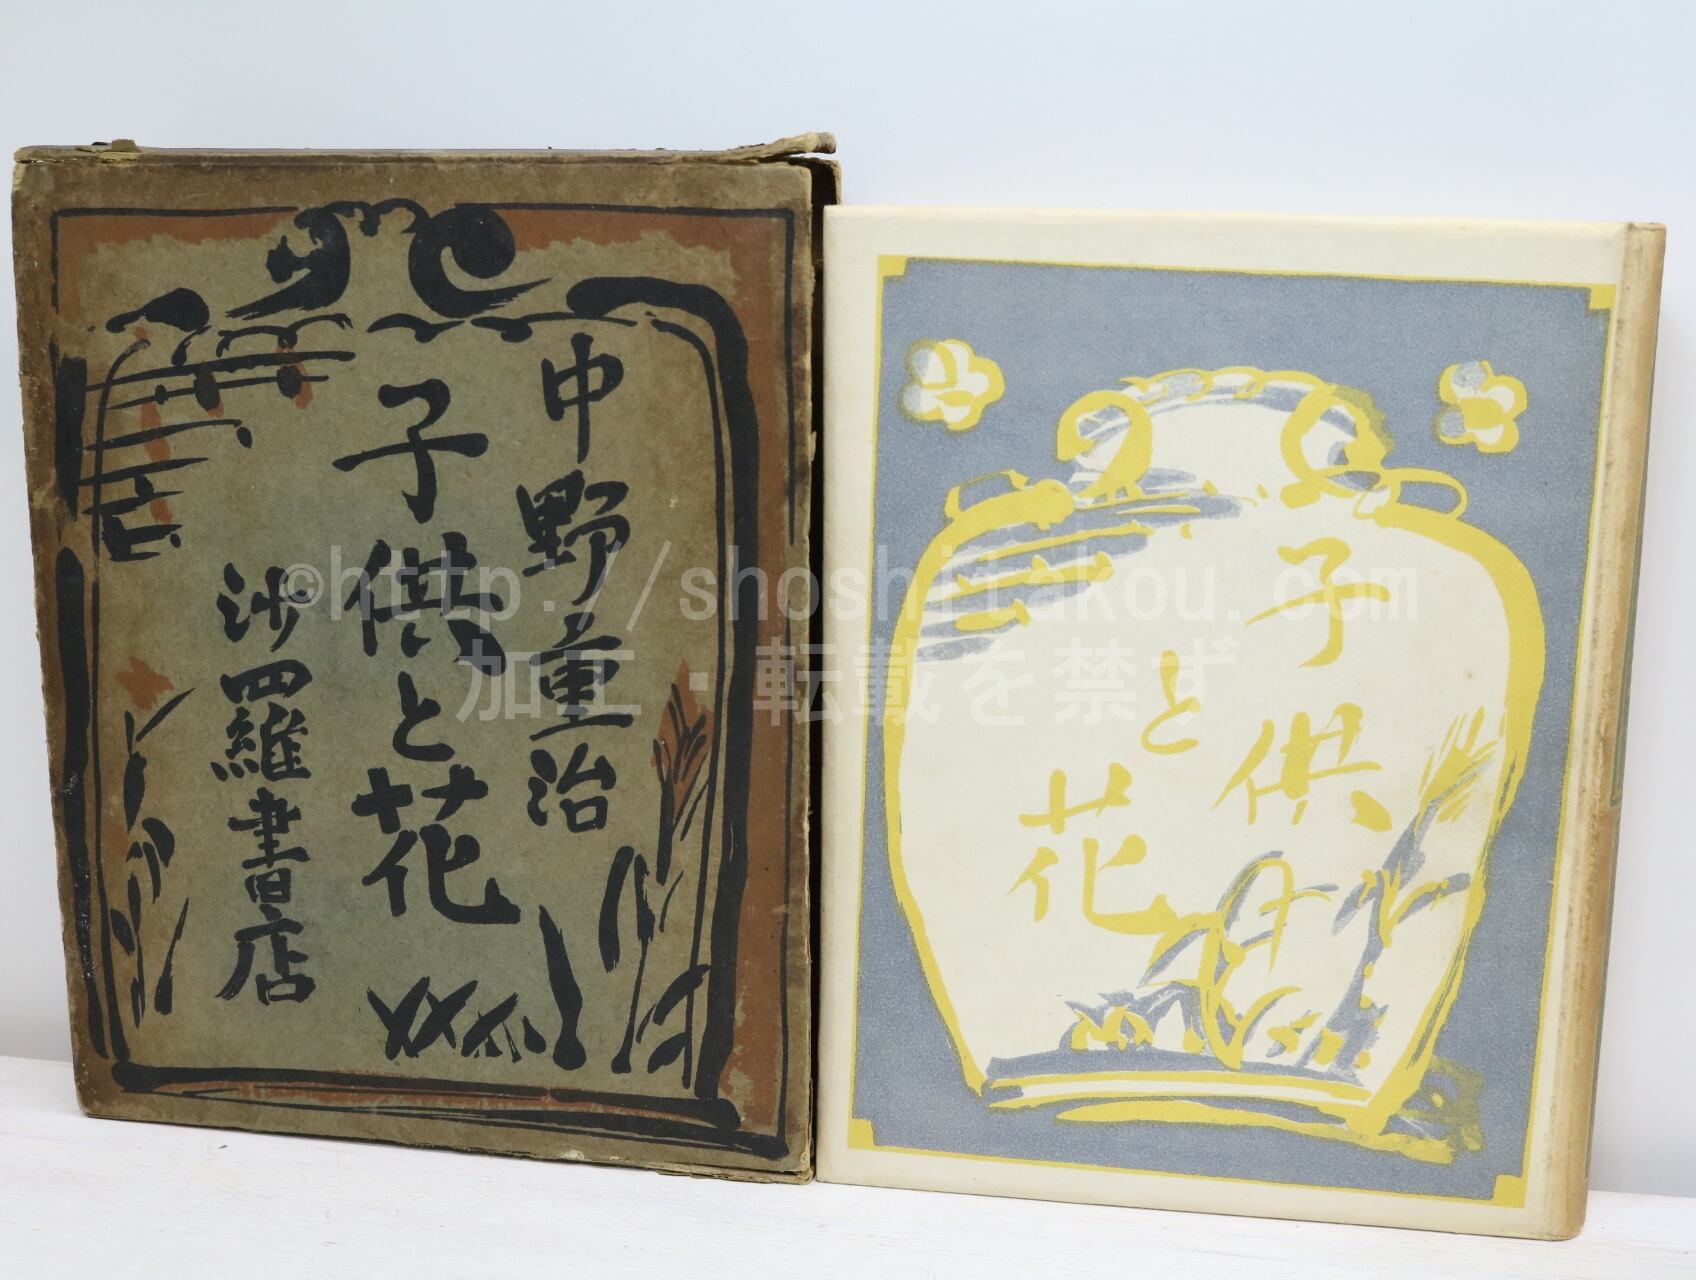 中野重治
子供と花
沙羅書店
子供
と
花
©http://shoshitakou.com
加工・転載を禁ず